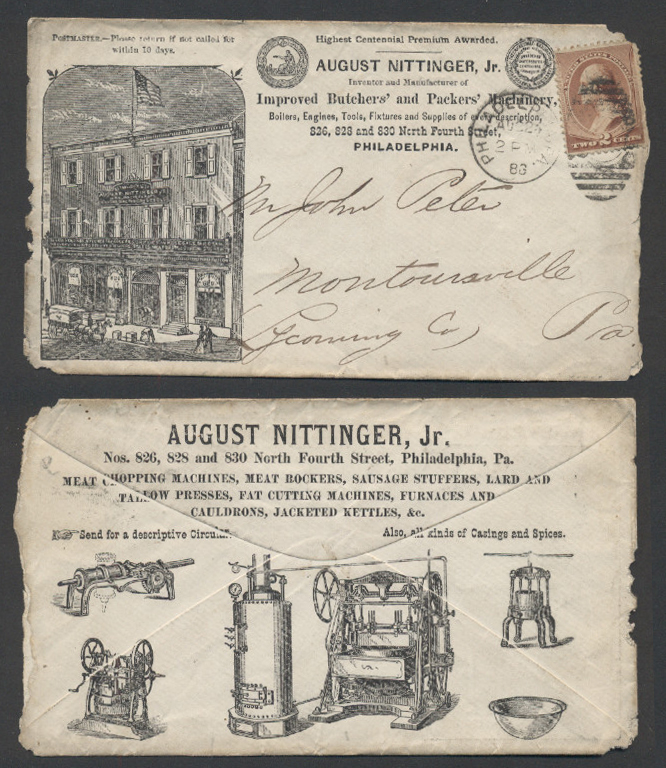 POSTMASTER.—Please return if not called for
within 10 days.
Highest Centennial Premium Awarded.
AUGUST NITTINGER, Jr.
Inventor and Manufacturer of
Improved Butchers' and Packers' Machinery,
Boilers, Engines, Tools, Fixtures and Supplies of every description,
826, 828 and 830 North Fourth Street,
PHILADELPHIA.
PHILADELPHIA PA.
2 PM
83
UNITED STATES POSTAGE
TWO 2 CENTS
Mr John Peter
Montoursville
Lycoming Co, Pa
AUGUST NITTINGER, Jr.
Nos. 826, 828 and 830 North Fourth Street, Philadelphia, Pa.
MEAT CHOPPING MACHINES, MEAT ROCKERS, SAUSAGE STUFFERS, LARD AND
TALLOW PRESSES, FAT CUTTING MACHINES, FURNACES AND
CAULDRONS, JACKETED KETTLES, &c.
Send for a descriptive Circular. Also, all kinds of Casings and Spices.